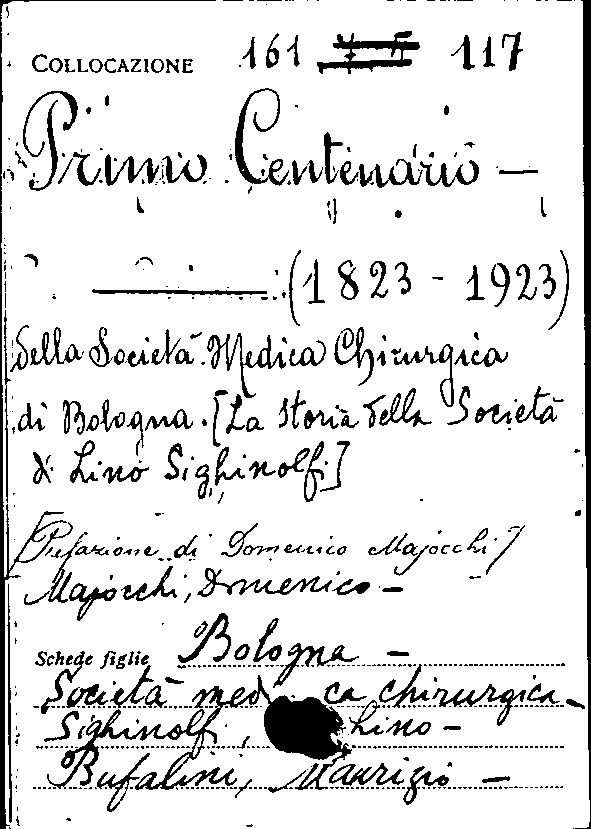 COLLOCAZIONE 161 117
Primo Centenario —
(1823 - 1923)
della Società Medica Chirurgica
di Bologna. [La storia della Società
di Lino Sighinolfi]
[Prefazione di Domenico Majocchi]
Majocchi, Domenico —
Schede figlie Bologna —
Società med ca chirurgica —
Sighinolfi, Lino —
Bufalini, Maurizio —